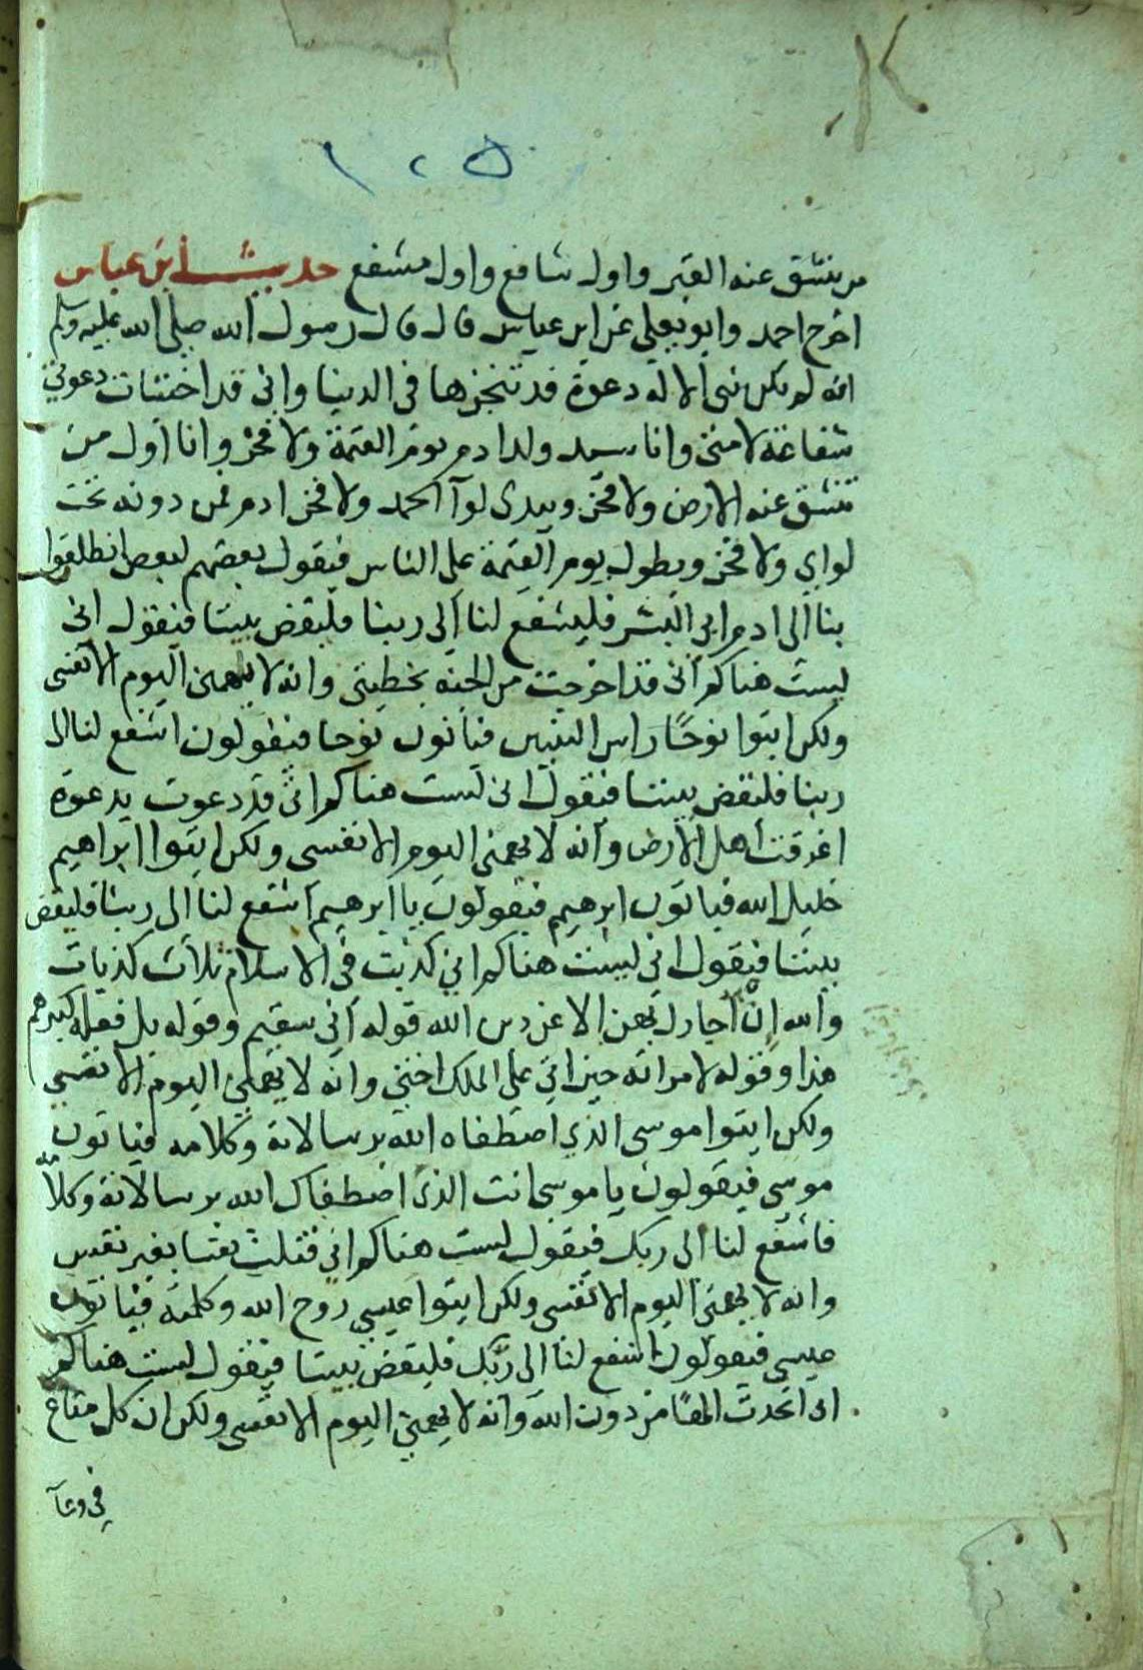 ١٠٥
من ينشق عنه القبر واول شافع واول مشفع حديث ابن عباس
اخرج احمد وابو يعلى عن ابن عباس قال قال رسول الله صلى الله عليه وسلم
انه لم يكن نبى الا له دعوة قد تنجزها فى الدنيا وانى قد اختبات دعوتي
شفاعة لامتى وانا سيد ولد ادم يوم القيمة ولا فخر وانا اول من
تنشق عنه الارض ولا فخر وبيدى لوآ الحمد ولا فخر ادم فمن دونه تحت
لواي ولا فخر ويطول يوم القيمة على الناس فيقول بعضهم لبعض انطلقوا
بنا الى ادم ابى البشر فليشفع لنا الى ربنا فليقض بيننا فيقول انى
لست هناكم انى قد اخرجت من الجنه بخطيتى وانه لا يهمنى اليوم الا نفسى
ولكن ايتوا نوحًا راس النبيين فياتون نوحا فيقولون اشفع لنا الى
ربنا فليقض بيننا فيقول انى لست هناكم انى قد دعوت بدعوة
اغرقت اهل الارض وانه لا يهمنى اليوم الا نفسى ولكن ايتوا ابراهيم
خليل الله فياتون ابرهيم فيقولون يا ابرهيم اشفع لنا الى ربنا فليقض
بيننا فيقول انى لست هناكم اني كذبت فى الاسلام ثلاث كذبات
والله ان احاول بهن الا عن دين الله قوله اني سقيم وقوله بل فعله كبيرهم
هذا وقوله لامراته حين اتى على الملك اختى وانه لا يهمنى اليوم الا نفسي
ولكن ايتوا موسى الذي اصطفاه الله برسالاته وكلامه فياتون
موسى فيقولون يا موسى انت الذى اصطفاك الله برسالاته وكلامه
فاشفع لنا الى ربك فيقول لست هناكم اني قتلت نفسا بغير نفس
وانه لا يهمنى اليوم الا نفسى ولكن ايتوا عيسي روح الله وكلمته فياتون
عيسى فيقولون اشفع لنا الى ربك فليقض بيننا فيقول لست هناكم
انى اتخدت الهًا من دون الله وانه لا يهمنى اليوم الا نفسى ولكن ان كل متاع
في وعآ